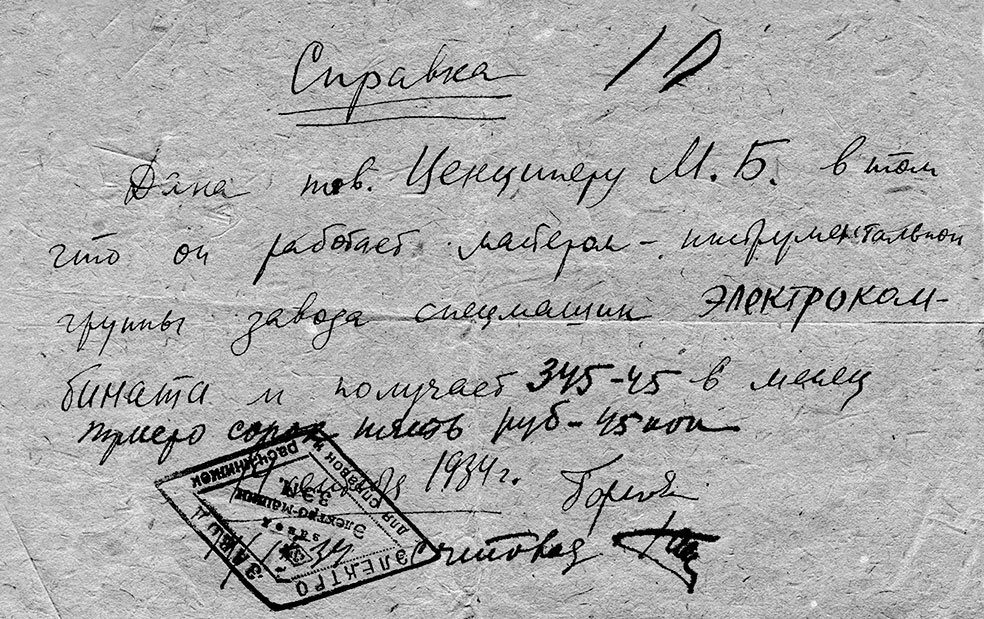 Справка
Дана тов. Ценциперу М. Б. в том
что он работает мастером - инструментальной
группы завода спецмашин ЭЛЕКТРОКОМ-
бината и получает 345-45 в месец
триста сорок пять руб - 45 коп
1934 г.
Счетовод
ЭЛЕКТРО ЗАВОД
для справок и расч. книжек
завод
Электро-машин
ЗЭМ